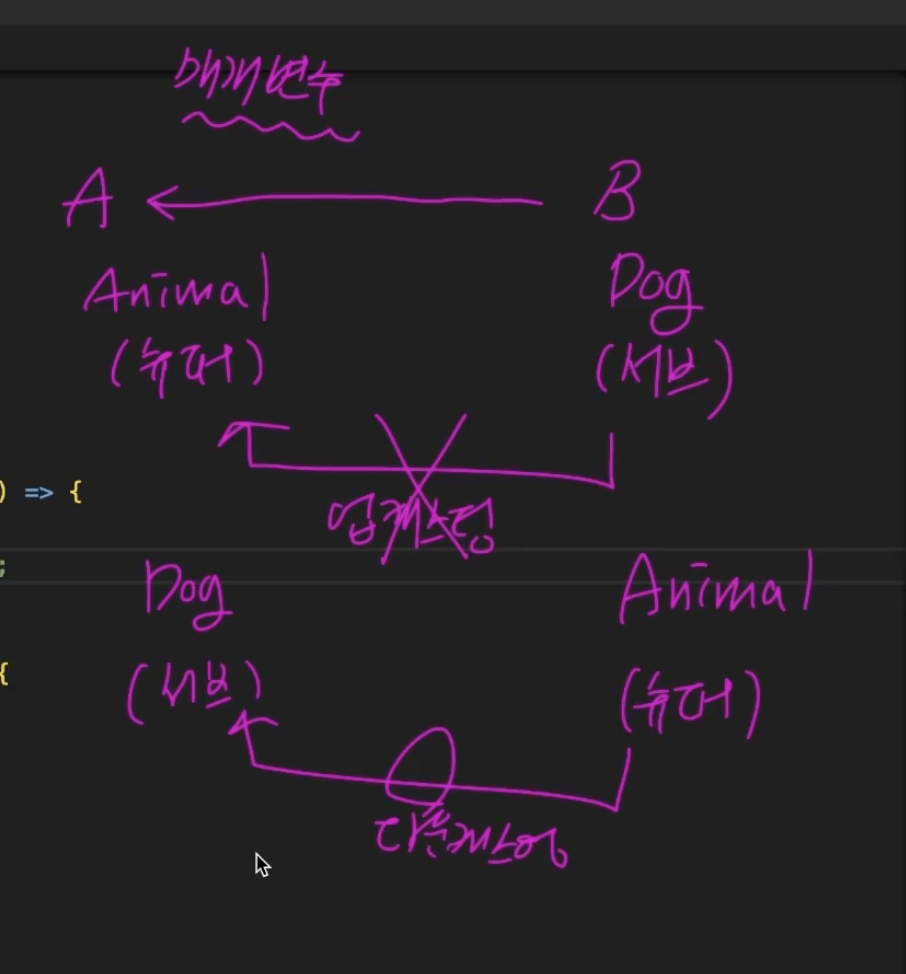 매개변수
A ← B
Animal Dog
(슈퍼) (서브)
업캐스팅
) => {
;
Dog Animal
{
(서브) (슈퍼)
다운캐스팅